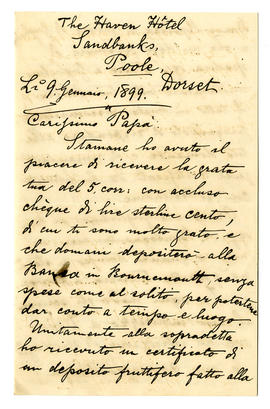 The Haven Hôtel
Sandbanks,
Poole,
Dorset
Li 9. Gennaio, 1899.
Carissimo Papa
Stamane ho avuto il
piacere di ricevere la grata
tua del 5. corr: con accluso
chèque di lire sterline cento,
di cui ti sono molto grato, e
che domani depositerò alla
Banca in Bournemouth, senza
spese come al solito, per potertene
dar conto a tempo e luogo.
Unitamente alla sopradetta
ho ricevuto un certificato di
un deposito fruttifero fatto alla